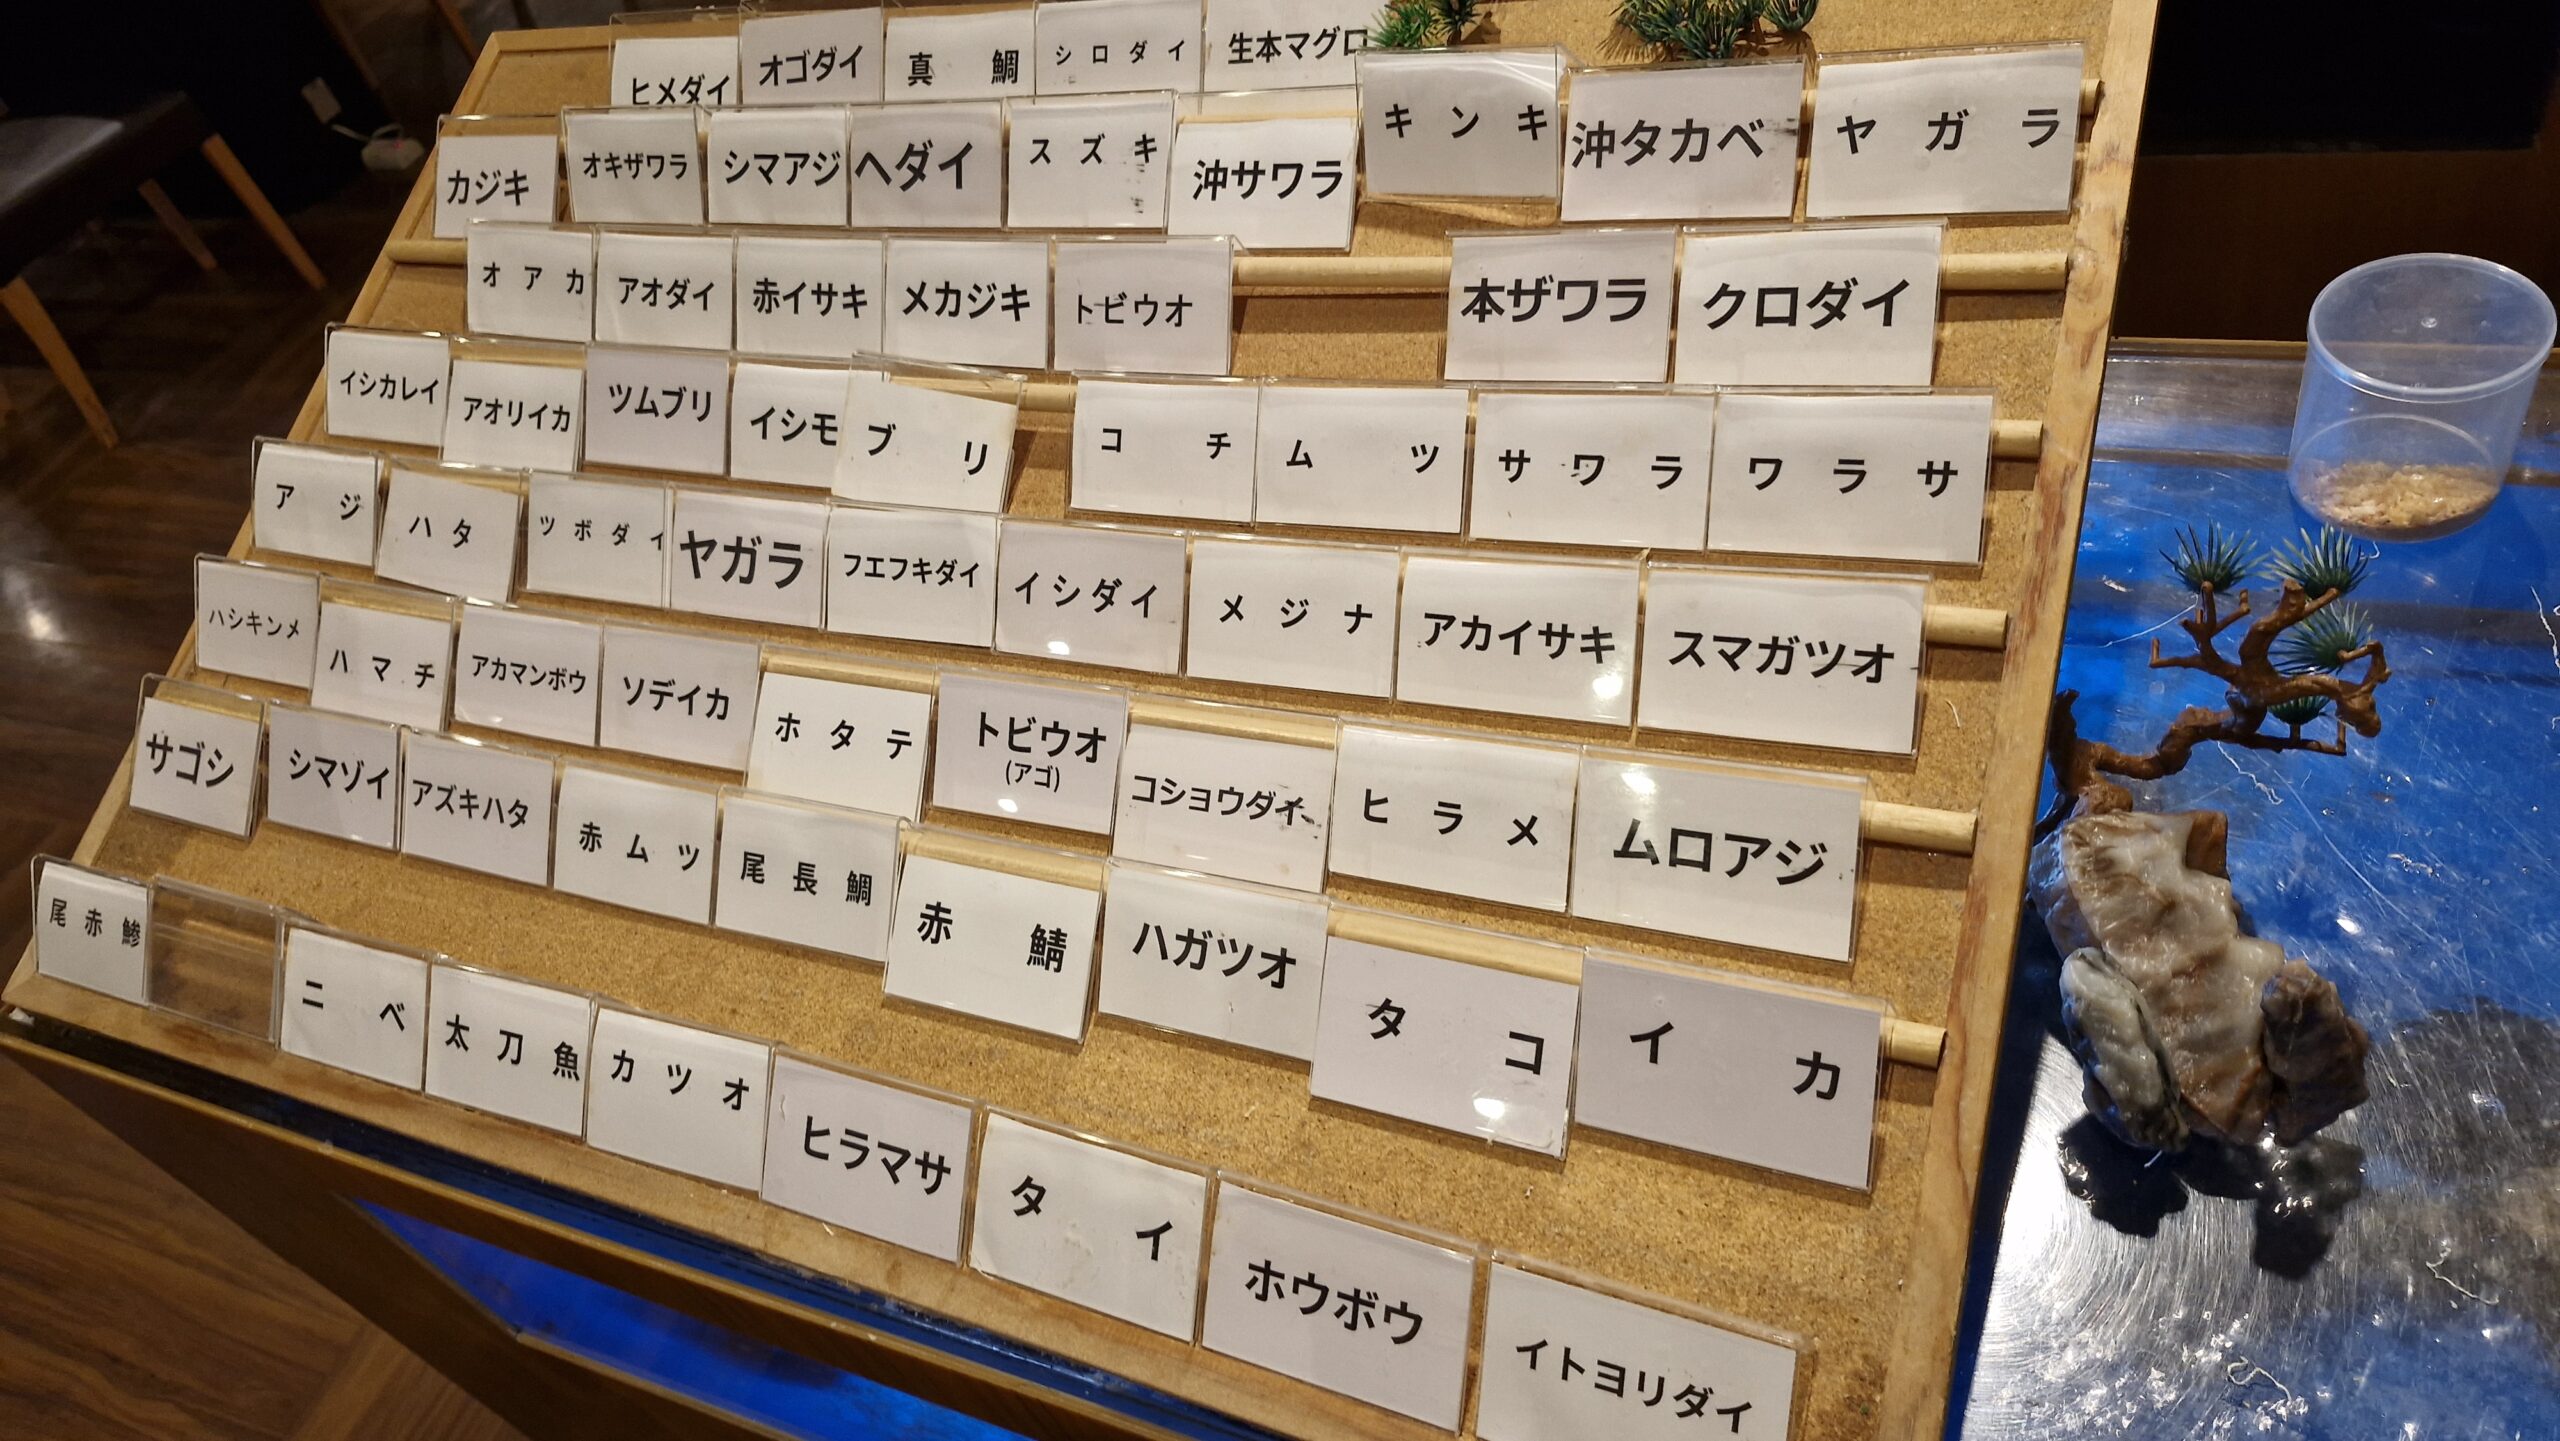 ヒメダイ
オゴダイ
真鯛
シロダイ
生本マグロ
キンキ
沖タカベ
ヤガラ
カジキ
オキザワラ
シマアジ
ヘダイ
スズキ
沖サワラ
オアカ
アオダイ
赤イサキ
メカジキ
トビウオ
本ザワラ
クロダイ
イシカレイ
アオリイカ
ツムブリ
イシモ
ブリ
コチ
ムツ
サワラ
ワラサ
アジ
ハタ
ツボダイ
ヤガラ
フエフキダイ
イシダイ
メジナ
アカイサキ
スマガツオ
ハシキンメ
ハマチ
アカマンボウ
ソデイカ
ホタテ
トビウオ
(アゴ)
コショウダイ
ヒラメ
ムロアジ
サゴシ
シマゾイ
アズキハタ
赤ムツ
尾長鯛
赤鯖
ハガツオ
タコ
イカ
尾赤鯵
ニベ
太刀魚
カツオ
ヒラマサ
タイ
ホウボウ
イトヨリダイ